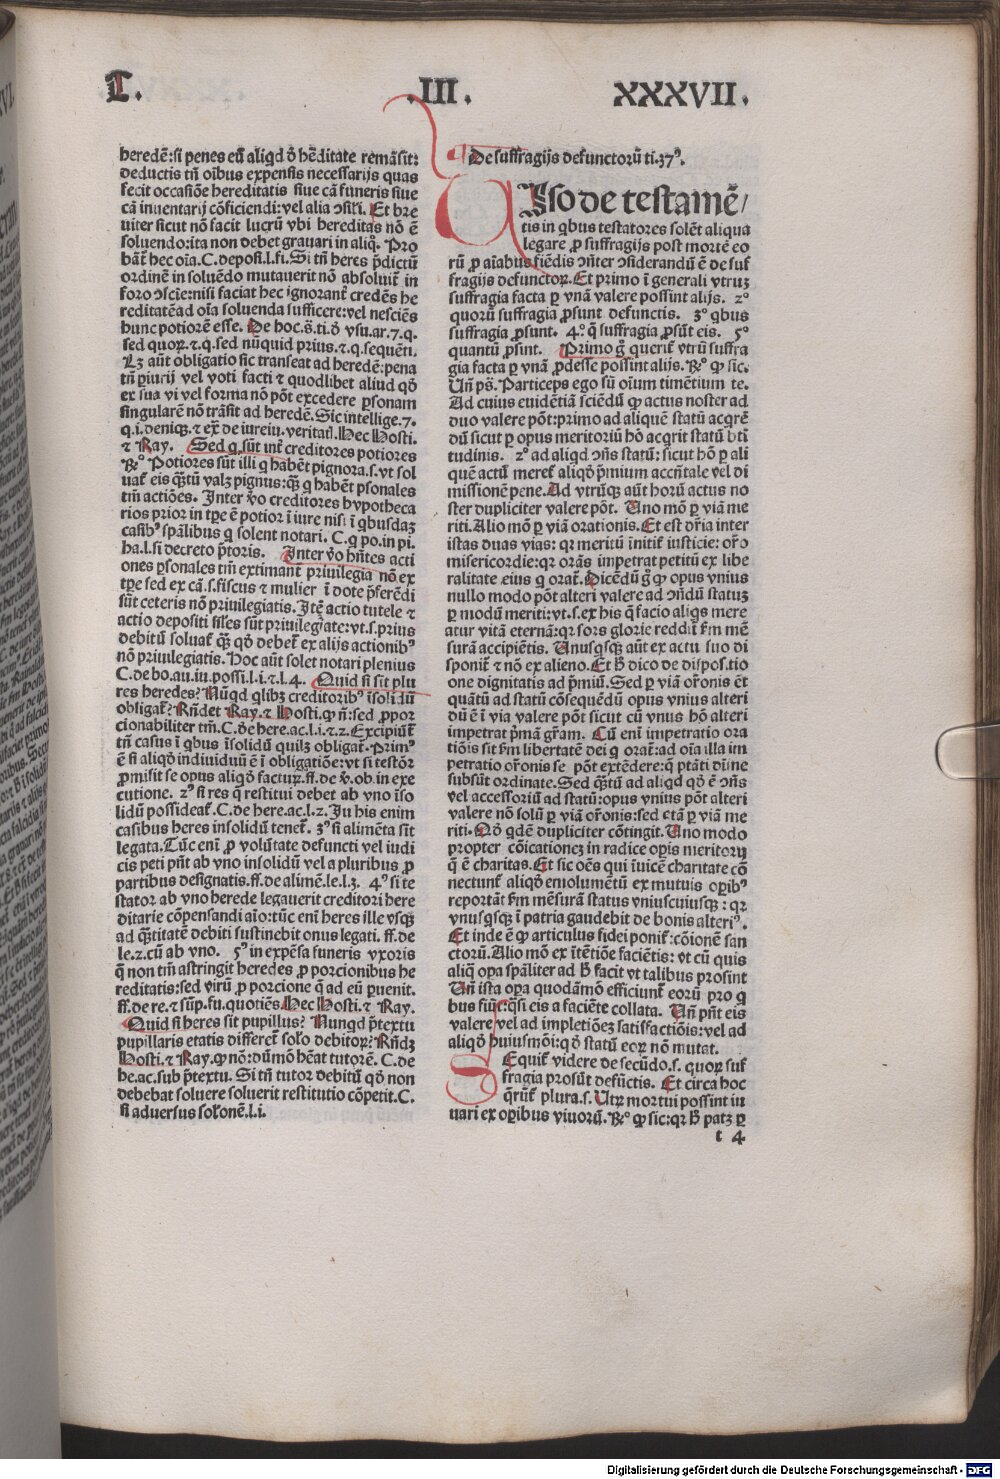 L. .III. XXXVII.
heredē:si penes eū aliqd ď hēditate remāsit:
deductis tñ oībus expensis necessarijs quas
fecit occasiōe hereditatis siue cā funeris siue
cā inuentarij cōficiendi:vel alia ↄsili. Et bre
uiter sicut nō facit lucrū vbi hereditas nō ē
soluendo:ita non debet grauari in aliqͦ. Pro
bāt hec oīa.C.deposi.l.fi. Si tñ heres p̄dictū
ordinē in soluēdo mutauerit nō absoluit̄ in
foro ↄscīe:nisi faciat hec ignorant̄ credēs he
reditatē ad oīa soluenda sufficere:vel nesciēs
hunc potiorē esse. De hoc.s̄.ti.ď vsu.ar.7.q.
sed quoꝝ.⁊.q.sed nūquid prius.⁊.q.sequēti.
Lꝫ aūt obligatio sic transeat ad heredē:pena
tñ piurij vel voti facti ⁊ quodlibet aliud qď
ex sua vi vel forma nō pōt excedere ꝑsonam
singularē nō trāsit ad heredē. Sic intellige.7.
q.i.deniqꝫ.⁊ ex̄ de iureiu.veritatī. Hec Hosti.
⁊ Ray. Sed q sūt int̄ creditores potiores
℞ͦ Potiores sūt illi q habēt pignora.s.vt sol
uat̄ eis q̄ꝫtū valꝫ pignus:q̄ꝫ q habēt ꝑsonales
tm̄ actiōes. Inter ꝟo creditores hypotheca
rios prior in tꝑe ē potior ī iure nisi ī qbusdaꝫ
casibꝰ spālibus q solent notari. C.q po.in pi.
ha.l.si decreto p̄toris. Inter ꝟo hñtes acti
ones ꝑsonales tm̄ extimant̄ priuilegia nō ex
tꝑe sed ex cā.s.fiscus ⁊ mulier ī dote p̄ferēdi
sūt ceteris nō priuilegiatis. Itē actio tutele ⁊
actio depositi siles sūt priuilegiate:vt.s.prius
debitū soluat̄ q̄ꝫ qď debet̄ ex alijs actionibꝰ
nō priuilegiatis. Hoc aūt solet notari plenius
C.de bo.au.iu.possi.l.i.⁊.l.4. Quid si sit plu
res heredes? Nūqd qlibꝫ creditoribꝰ īsolidū
obligat̄? Rñdet Ray.⁊ Hosti.ꝙ ñ:sed ꝓpor
cionabiliter tm̄.C.de here.ac.l.i.⁊.2. Excipiūt̄
tñ casus ī qbus īsolidū quilꝫ obligat̄. Primꝰ
ē si aliqď indiuiduū ē ī obligatiōe:vt si testōr
ꝓmisit se opus aliqď facturū.ff.de ꝟ.ob.in exe
cutione. 2ꝰ si res q̄ restitui debet ab vno īso
lidū possideat̄.C.de here.ac.l.2. In his enim
casibus heres insolidū tenet̄. 3ꝰ si alimēta sīt
legata. Tūc enī ꝓ volūtate defuncti vel iudi
cis peti pñt ab vno insolidū vel a pluribus ꝓ
partibus designatis.ff.de alimē.le.l.3. 4ꝰ si te
stator ab vno herede legauerit creditori here
ditarie cōpensandi aīo:tūc enī heres ille vsqꝫ
ad q̄titatē debiti sustinebit onus legati. ff.de
le.2.cū ab vno. 5ꝰ in expēsa funeris vxoris
q̄ non tm̄ astringit heredes ꝓ porcionibus he
reditatis:sed virū ꝓ porcione q̄ ad eū ꝑuenit.
ff.de re.⁊ sūp.fu.quotiēs. Hec Hosti.⁊ Ray.
Quid si heres sit pupillus? Nunqd p̄textu
pupillaris etatis differet̄ solō debitoꝝ? Rñdꝫ
Hosti.⁊ Ray.ꝙ nō:dūmō hēat tutorē. C.de
he.ac.sub p̄textu. Si tñ tutor debitū qď non
debebat soluere soluerit restitutio cōpetit.C.
si aduersus solonē.l.i.
De suffragijs defunctorū ti.37ꝰ.
Ipso de testamē/
tis in qbus testatores solēt aliqua
legare ꝓ suffragijs post mortē eo
rū ꝓ aīabus fiēdis ↄñter ↄsiderandū ē de suf
fragijs defunctoꝝ. Et primo ī generali vtruꝫ
suffragia facta ꝑ vnā valere possint alijs. 2ͦ
quorū suffragia ꝓsunt defunctis. 3ͦ qbus
suffragia ꝓsunt. 4ͦ.q̄ suffragia ꝓsūt eis. 5ͦ
quantū ꝓsint. Primo g̊ querit̄ vtrū suffra
gia facta ꝑ vnā ꝓdesse possint alijs. ℞ͦ ꝙ sic.
Uñ ps̄. Particeps ego sū oīum timētium te.
Ad cuius euidētiā sciēdū ꝙ actus noster ad
duo valere pōt:primo ad aliquē statū acqrē
dū sicut ꝑ opus meritoriū hō acqrit statū bt̄i
tudinis. 2ͦ ad aliqd ↄñs statū:sicut hō ꝑ ali
quē actū meret̄ aliqď p̄mium accñtale vel di
missionē pene. Ad vtrūqꝫ aūt horū actus no
ster dupliciter valere pōt. Uno mō ꝑ viā me
riti. Alio mō ꝑ viā orationis. Et est dr̄ia inter
istas duas vias: qꝛ meritū īnitit̄ iusticie: or̄o
misericordie:qꝛ orās impetrat petitū ex libe
ralitate eius q orat̄. Dicēdū g̊ ꝙ opus vnius
nullo modo pōt alteri valere ad ↄñdū statuꝫ
ꝑ modū meriti:vt.s.ex his q̄ facio aliqs mere
atur vitā eternā:qꝛ sors glorie reddit̄ ẜm mē
surā accipiētis. Unusqsqꝫ aūt ex actu suo di
sponit̄ ⁊ nō ex alieno. Et ħ dico de dispositio
one dignitatis ad p̄miū. Sed ꝑ viā or̄onis ēt
quātū ad statū cōsequēdū opus vnius alteri
dū ē ī via valere pōt sicut cū vnus hō alteri
impetrat p̄mā gr̄am. Cū enī impetratio ora
tiōis sit ẜm libertatē dei q orat̄:ad oīa illa im
petratio or̄onis se pōt extēdere:q̄ ptāti diuine
subsūt ordinate. Sed q̄ꝫtū ad aliqd qď ē ↄñs
vel accessoriū ad statū:opus vnius pōt alteri
valere nō solū ꝑ viā or̄onis:sed etā ꝑ viā me
riti. Qď qdē dupliciter cōtingit. Uno modo
propter cōicationeꝫ in radice opis meritorij
q̄ ē charitas. Et sic oēs qui īuicē charitate cō
nectunt̄ aliqď emolumētū ex mutuis oꝑibꝰ
reportāt ẜm mēsurā status vniuscuiusqꝫ: qꝛ
vnusqsqꝫ ī patria gaudebit de bonis alteriꝰ.
Et inde ē ꝙ articulus fidei ponit̄:cōionē san
ctorū. Alio mō ex ītētiōe faciētis: vt cū quis
aliqͣ oꝑa spāliter ad ħ facit vt talibus prosint
Uñ ista oꝑa quodāmō efficiunt̄ eorū pro q
bus fiūt:q̄si eis a faciēte collata. Uñ pñt eis
valere vel ad impletiōeꝫ satisfactiōis:vel ad
aliqď huiusmōi:qď statū eoꝝ nō mutat.
Sequit̄ videre de secūdo.s. quoꝝ suf
fragia prosūt defūctis. Et circa hoc
q̄rūt̄ plura.s. Utꝝ mortui possint iu
uari ex oꝑibus viuorū. ℞ͦ ꝙ sic:qꝛ ħ patꝫ ꝑ
t 4
Digitalisierung gefördert durch die Deutsche Forschungsgemeinschaft - DFG